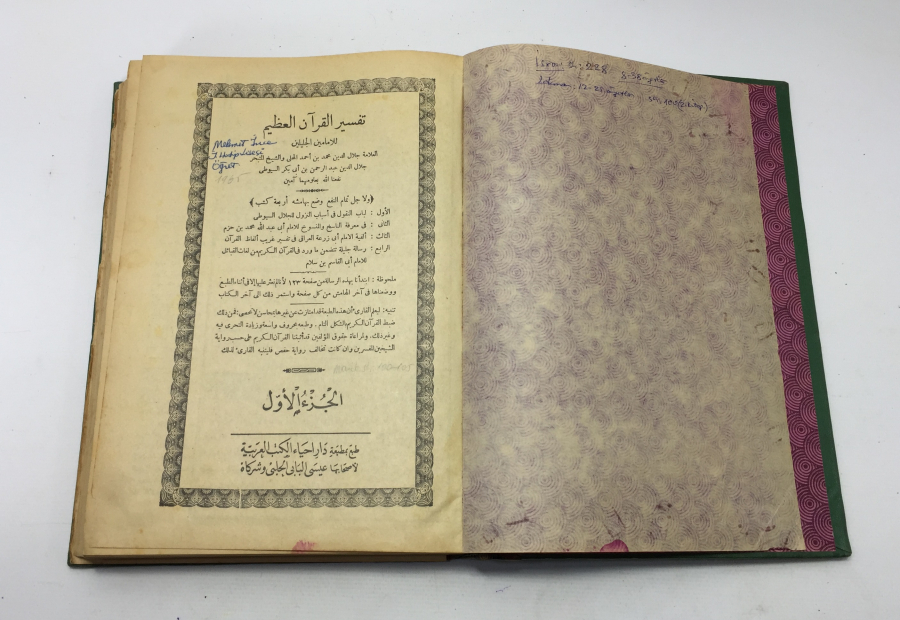 تفسير القرآن العظيم
للامامين الجليلين
العلامة جلال الدين محمد بن أحمد المحلى والشيخ المتبحر
جلال الدين عبد الرحمن بن أبى بكر السيوطى
نفعنا الله بعلومهما آمين
﴿ولاجل تمام النفع وضع بهامشه أربعة كتب﴾
الأول : لباب النقول فى أسباب النزول للجلال السيوطى
الثانى : فى معرفة الناسخ والمنسوخ للامام أبى عبد الله محمد بن حزم
الثالث : ألفية الامام أبى زرعة العراقى فى تفسير غريب ألفاظ القرآن
الرابع : رسالة جليلة تتضمن ما ورد فى القرآن الكريم من لغات القبائل
للامام أبى القاسم بن سلام
ملحوظة : ابتدأنا بهذه الرسالة من صفحة ١٢٣ لأننا لم نعثر عليها إلا فى أثناء الطبع
ووضعناها فى آخر الهامش من كل صفحة واستمر ذلك الى آخر الكتاب
تنبيه : ليعلم القارىء أن هذه الطبعة قد امتازت عن غيرها بمحاسن لا تحصى : فمن ذلك
ضبط القرآن الكريم بالشكل التام . وطبعه بحروف واسعة وزيادة التحرى فيه
وغير ذلك . ولمراعاة حقوق المؤلفين قد أثبتنا القرآن الكريم على حسب رواية
الشيخين المفسرين وان كانت تخالف رواية حفص فليتنبه القارىء لذلك
الجزء الأول
طبع بمطبعة دار احياء الكتب العربية
لأصحابها عيسى البابى الحلبى وشركاه
Mehmet İnce
Öğret
1965